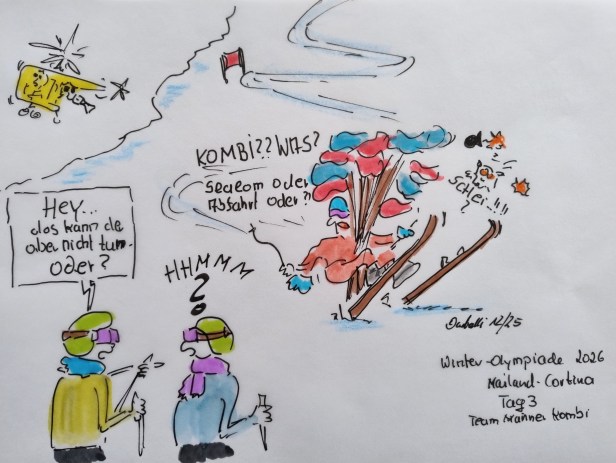 KOMBI?? WAS?
Slalom oder
Abfahrt oder?!
Schei..!!!
Hey...
das kann de
aber nicht tun...
oder?
HHMMM
?
12/25
Winter-Olympiade 2026
Mailand-Cortina
Tag 3
Team Männer Kombi